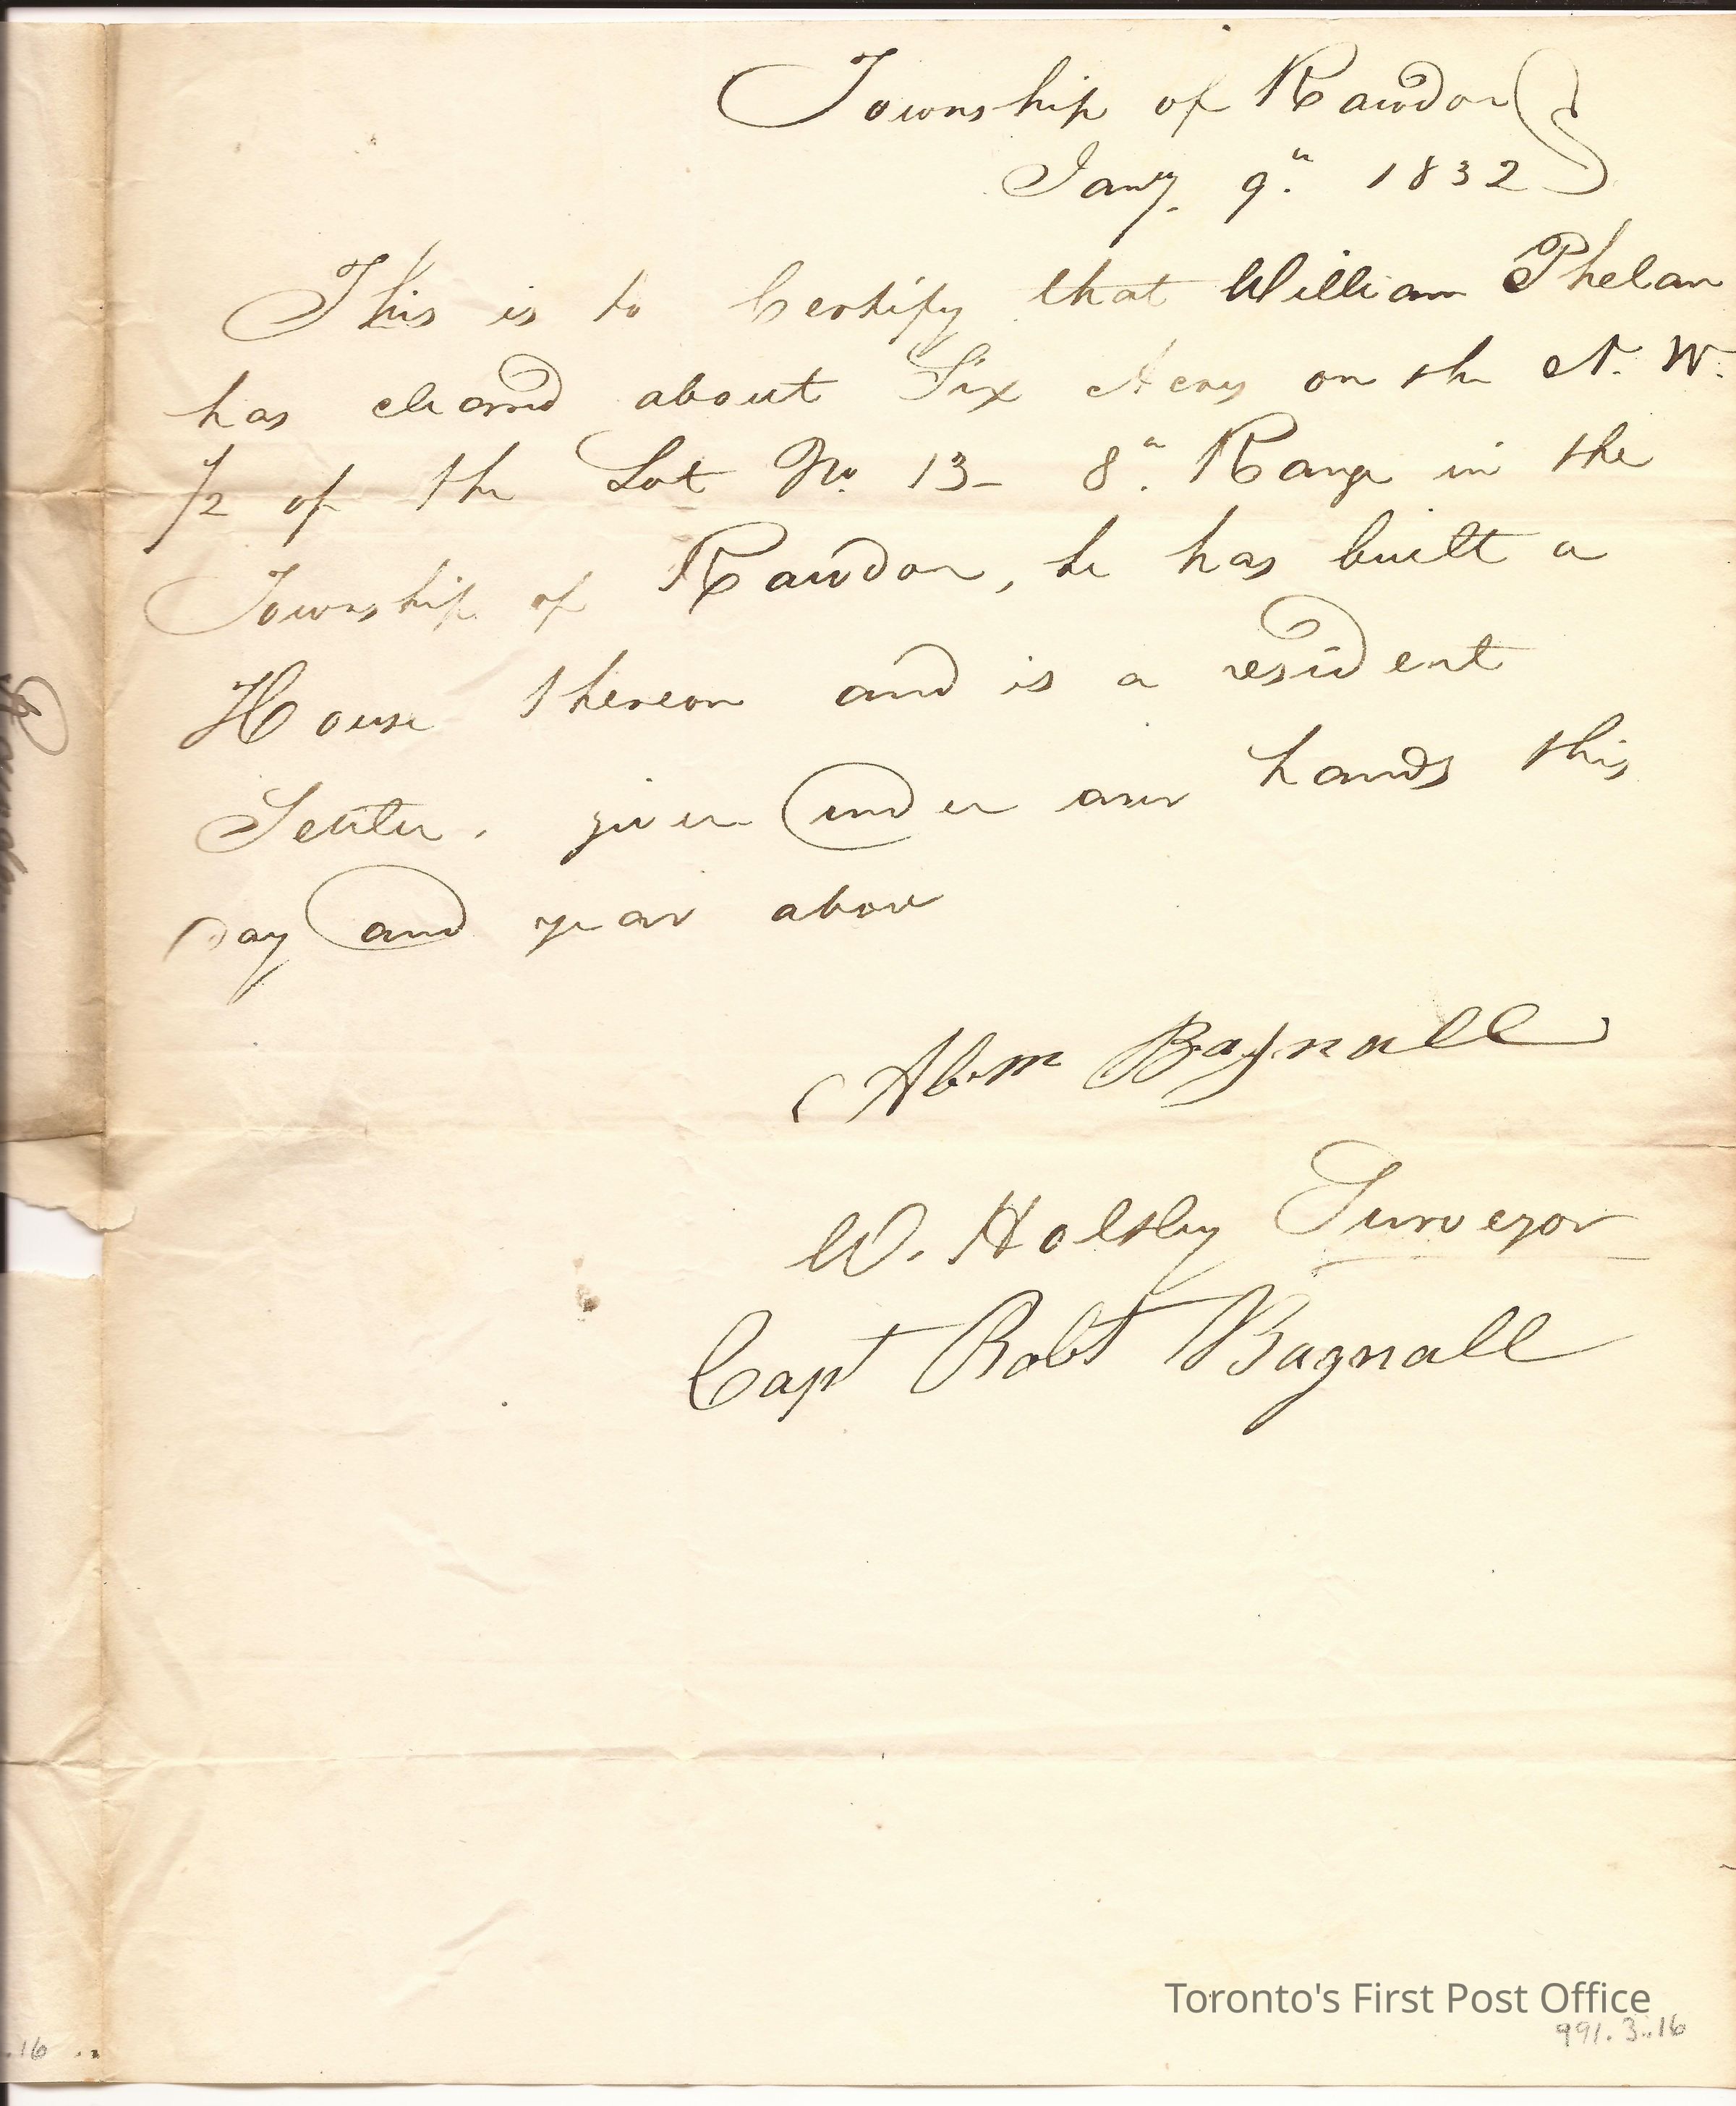 Township of Rawdon
Jany. 9th 1832
This is to Certify that William Phelan
has cleared about Six Acres on the N. W.
1/2 of the Lot No. 13 - 8th Range in the
Township of Rawdon, he has built a
House thereon and is a resident
Settler. given under our hands this
Day and year above
Abm Bagnall
W. Holtby Surveyor
Capt Robt Bagnall
Toronto's First Post Office
991.3.16
.16